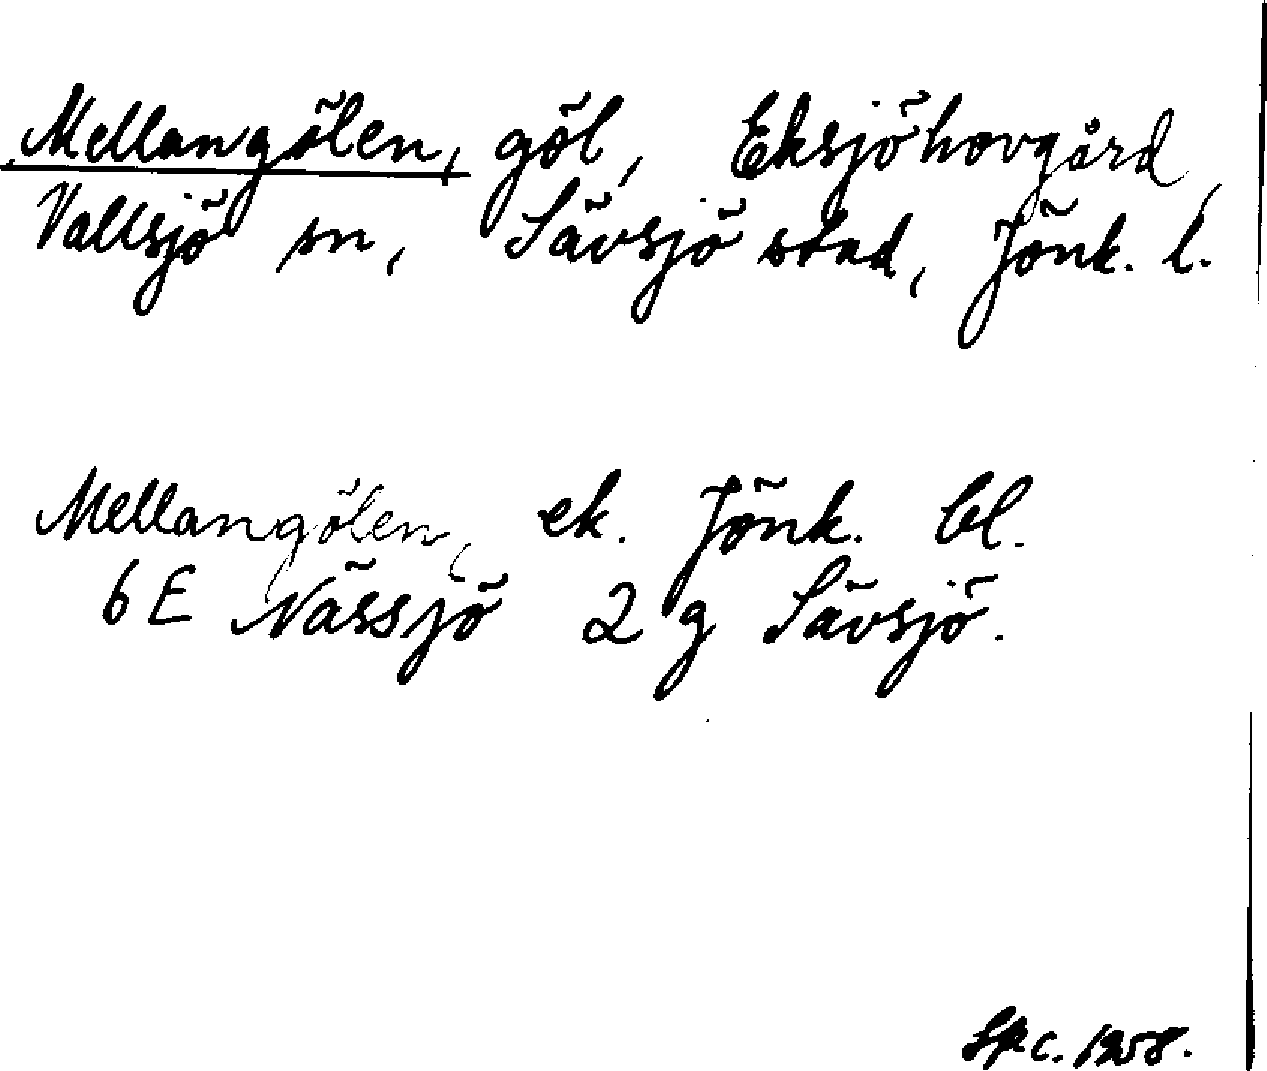 Mellangölen, göl, Eksjöhovgård,
Vallsjö sn, Sävsjö stad, Jönk. l.
Mellangölen, ek. Jönk. bl.
6 E Nässjö 2 g Sävsjö.
1958.